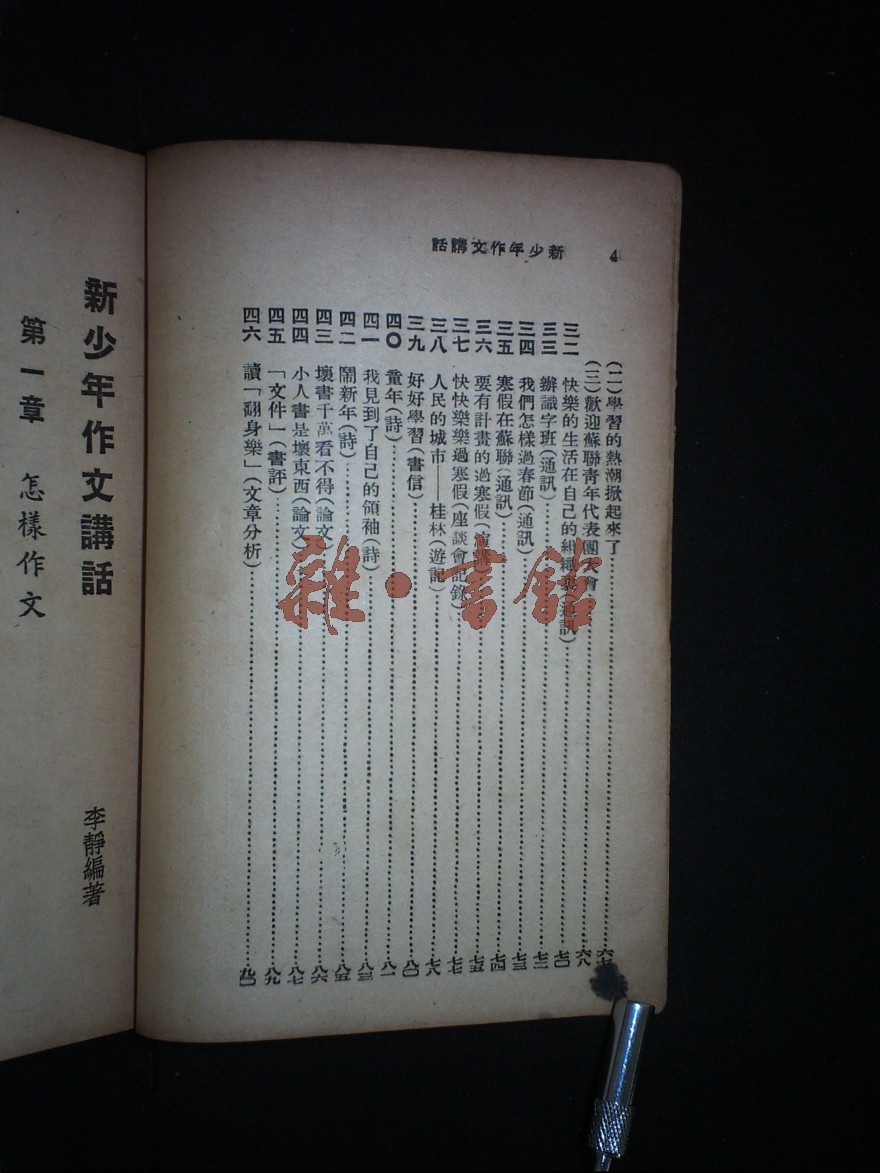 4
新少年作文講話
(二)學習的熱潮掀起來了……六七
(三)歡迎蘇聯靑年代表團大會……六八
三二 快樂的生活在自己的組織裏(通訊)……七〇
三三 辦識字班(通訊)……七二
三四 我們怎樣過春節(通訊)……七三
三五 寒假在蘇聯(通訊)……七四
三六 要有計畫的過寒假(演講)……七五
三七 快快樂樂過寒假(座談會記錄)……七七
三八 人民的城市——桂林(遊記)……七八
三九 好好學習(書信)……八〇
四〇 童年(詩)……八一
四一 我見到了自己的領袖(詩)……八三
四二 鬧新年(詩)……八五
四三 壞書千萬看不得(論文)……八六
四四 小人書是壞東西(論文)……八七
四五 「文件」(書評)……八九
四六 讀「翻身樂」(文章分析)……九〇
新少年作文講話
李靜編著
第一章 怎樣作文
雜·書館